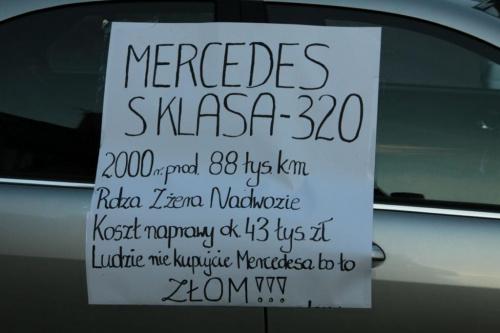 MERCEDES
S KLASA-320
2000r. prod. 88 tys. km
Rdza Zżera Nadwozie
Koszt naprawy ok. 43 tys. zł
Ludzie nie kupujcie Mercedesa bo to
ZŁOM!!!